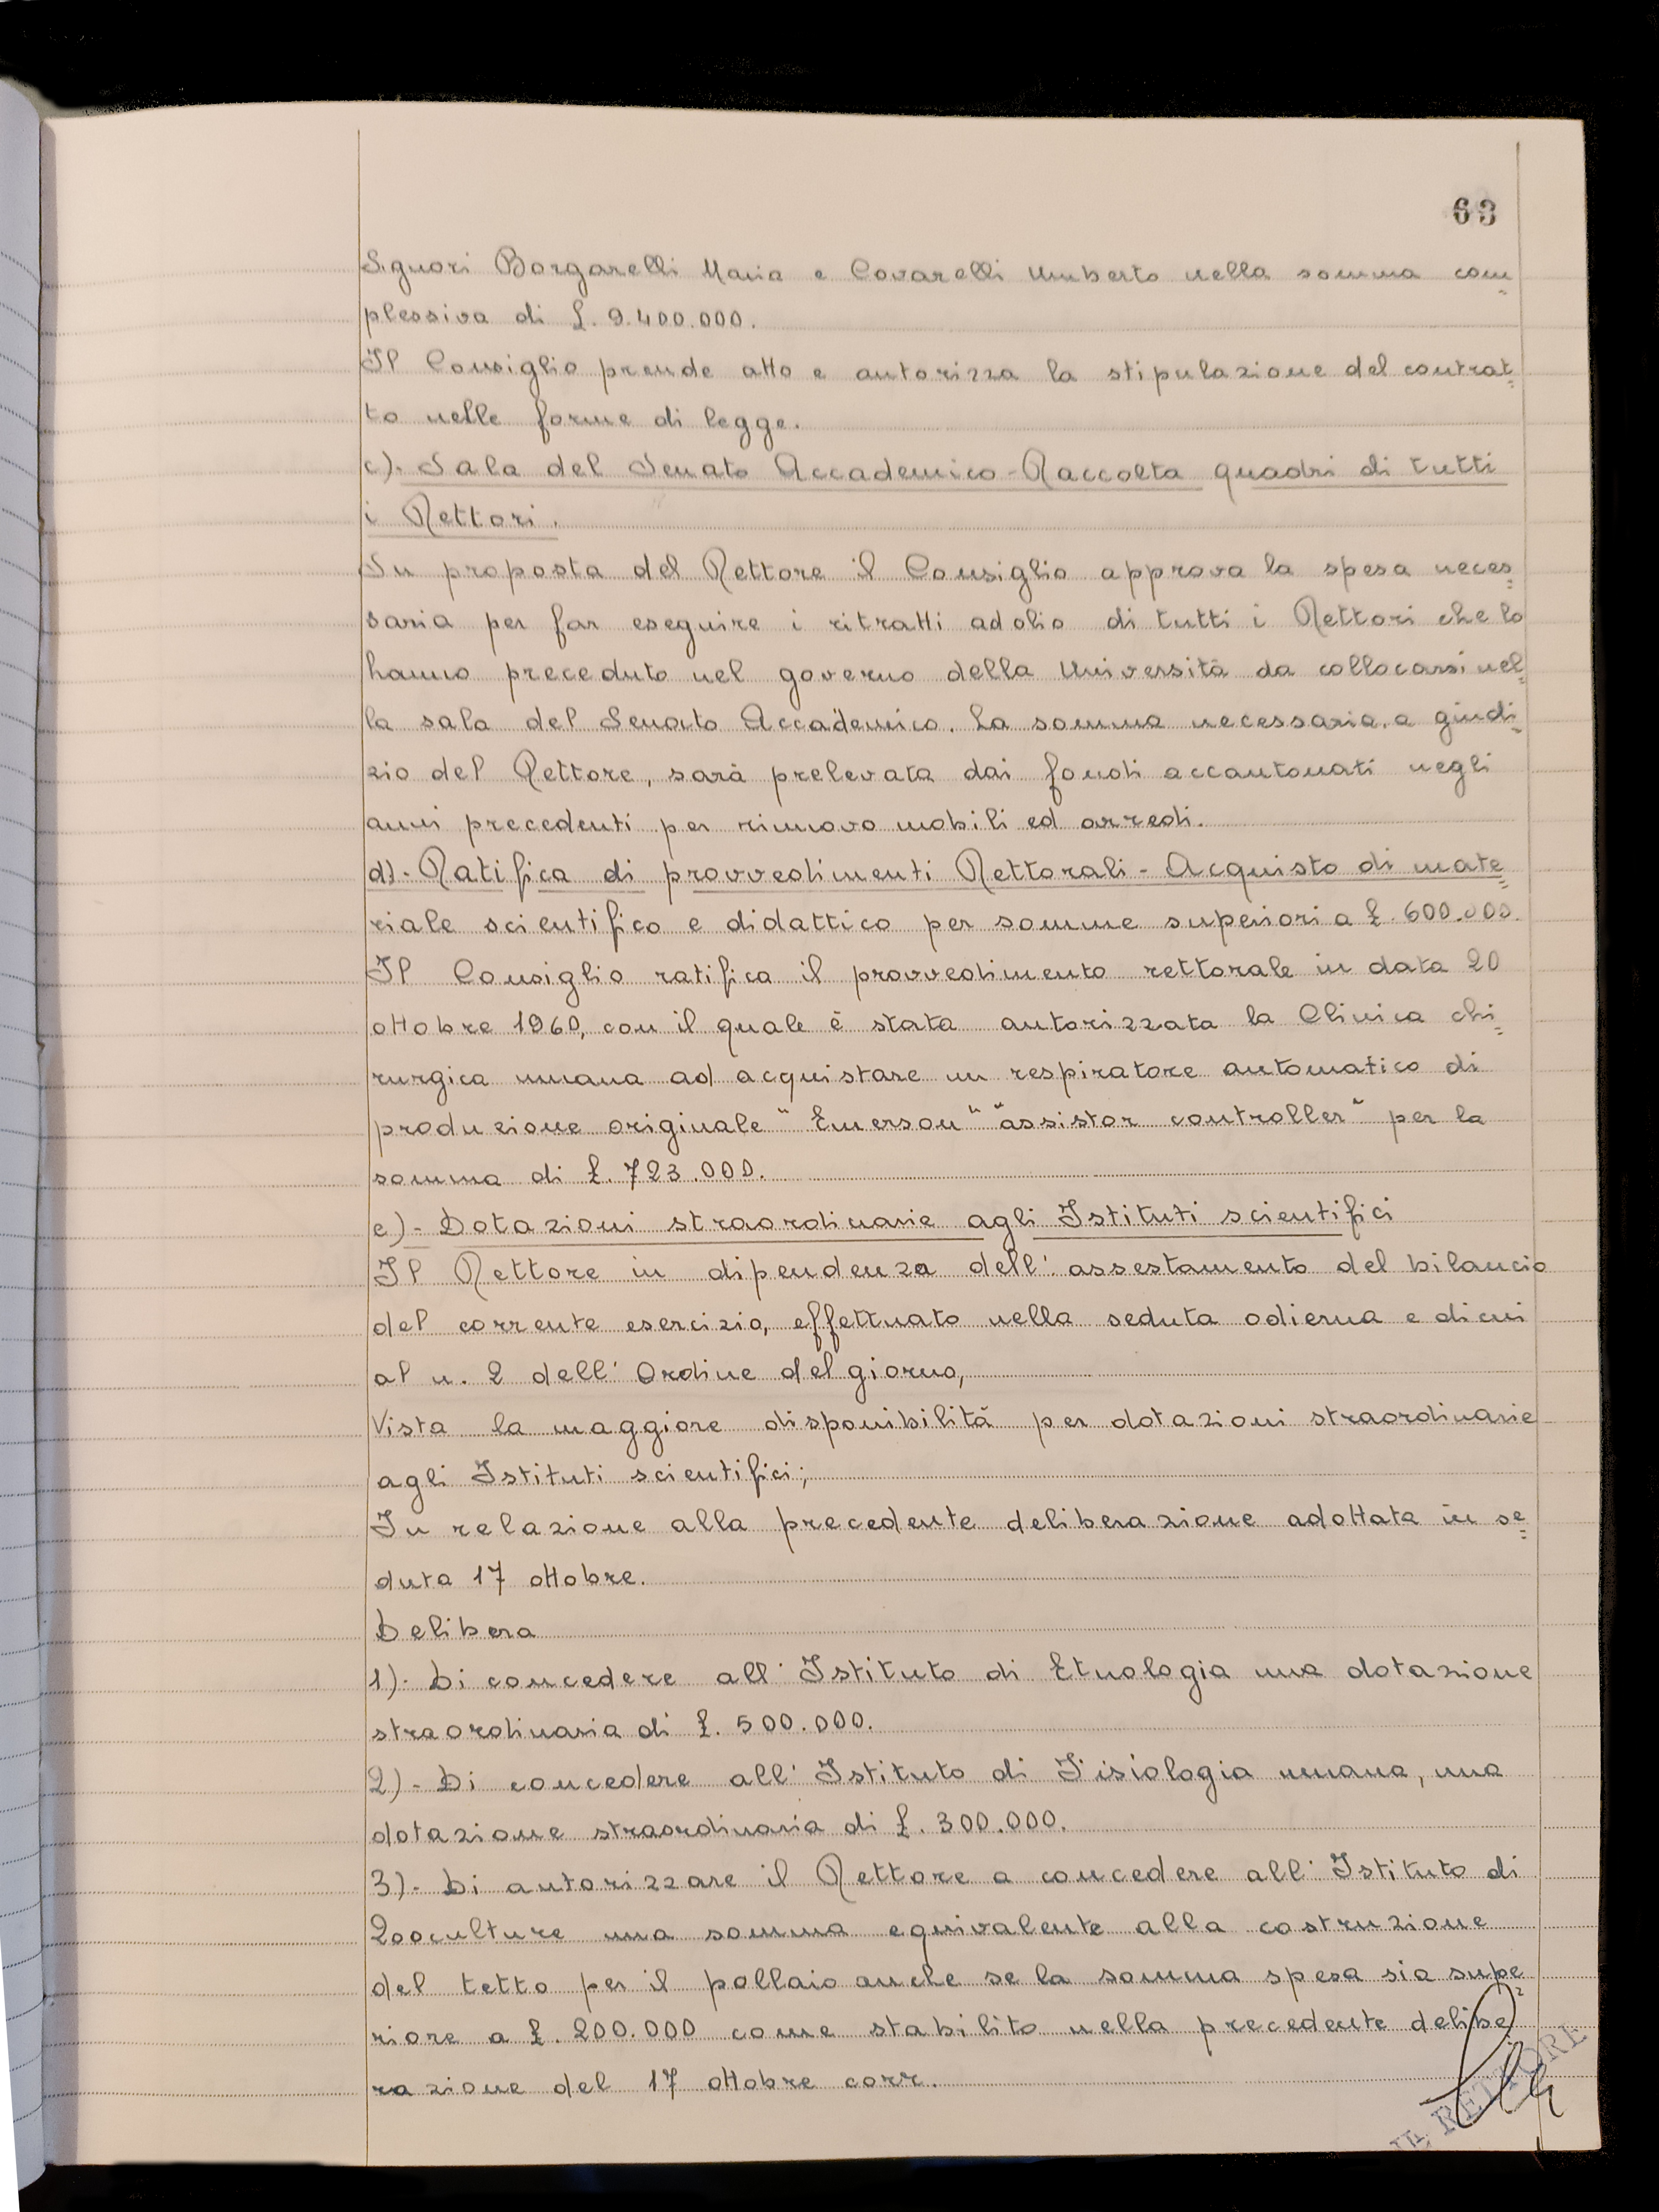 63
Signori Borgarelli Maria e Covarelli Umberto nella somma com=
plessiva di £. 9.400.000.
Il Consiglio prende atto e autorizza la stipulazione del contrat=
to nelle forme di legge.
c). Sala del Senato Accademico - Raccolta quadri di tutti
i Rettori.
Su proposta del Rettore il Consiglio approva la spesa neces=
saria per far eseguire i ritratti ad olio di tutti i Rettori che lo
hanno preceduto nel governo della Università da collocarsi nel=
la sala del Senato Accademico. La somma necessaria, a giudi=
zio del Rettore, sarà prelevata dai fondi accantonati negli
anni precedenti per rinnovo mobili ed arredi.
d). Ratifica di provvedimenti Rettorali - Acquisto di mate=
riale scientifico e didattico per somme superiori a £. 600.000.
Il Consiglio ratifica il provvedimento rettorale in data 20
ottobre 1960, con il quale è stata autorizzata la Clinica chi=
rurgica umana ad acquistare un respiratore automatico di
produzione originale "Emerson" "assistor controller" per la
somma di £. 723.000.
e) - Dotazioni straordinarie agli Istituti scientifici
Il Rettore in dipendenza dell'assestamento del bilancio
del corrente esercizio, effettuato nella seduta odierna e di cui
al n. 2 dell'Ordine del giorno,
Vista la maggiore disponibilità per dotazioni straordinarie
agli Istituti scientifici;
In relazione alla precedente deliberazione adottata in se=
duta 17 ottobre.
Delibera
1). Di concedere all'Istituto di Etnologia una dotazione
straordinaria di £. 500.000.
2) - Di concedere all'Istituto di Fisiologia umana, una
dotazione straordinaria di £. 300.000.
3). Di autorizzare il Rettore a concedere all'Istituto di
Zooculture una somma equivalente alla costruzione
del tetto per il pollaio anche se la somma spesa sia supe=
riore a £. 200.000 come stabilito nella precedente delibe
razione del 17 ottobre corr.
IL RETTORE